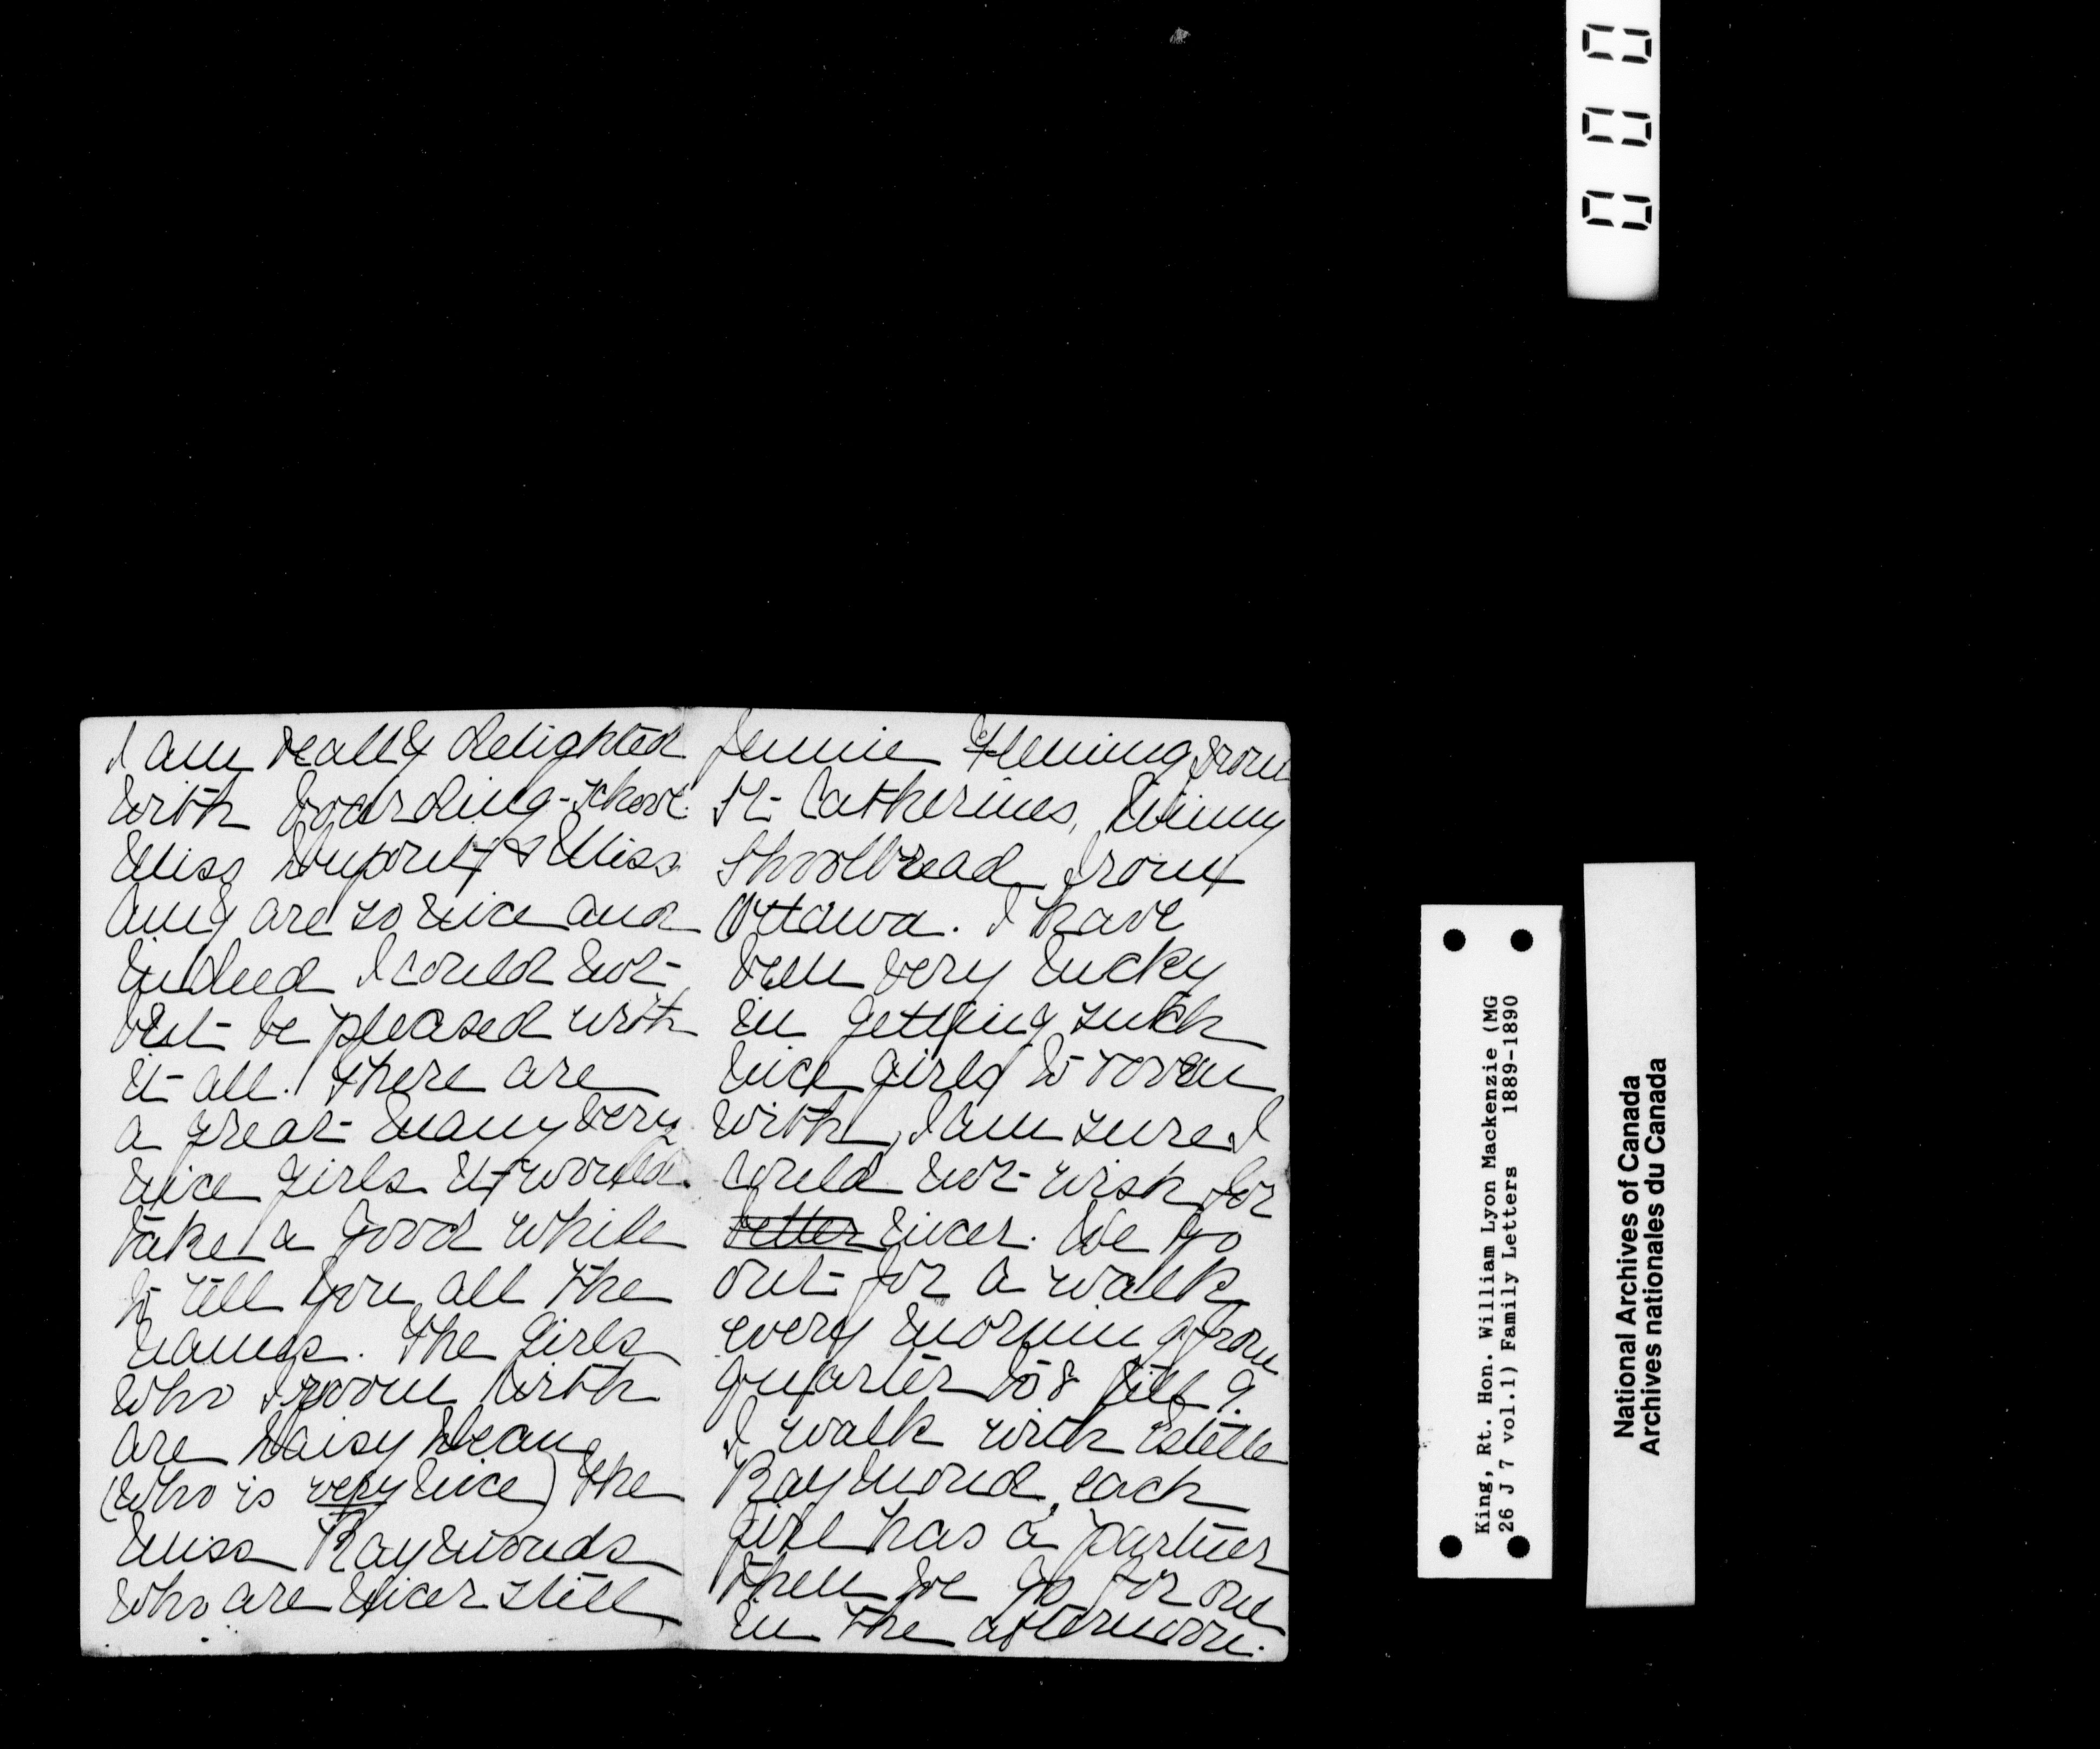 I am really delighted
with boarding-school.
Miss Dupont & Miss
Amy are so nice and
indeed I could not
but be pleased with
it all. There are
a great many very
nice girls it would
take a good while
to tell you all the
names. The girls
who I room with
are Daisy Dean
(who is very nice) the
Miss Raymonds
who are nicer still
Jennie Fleming from
St Catherines, Minny
Shoolbread from
Ottawa. I have
been very lucky
in getting such
nice girls to room
with, I am sure I
could not wish for
better nicer. We go
out for a walk
every morning from
quarter to 8 till 9.
I walk with Estelle
Raymond, each
girl has a partner
then we go for one
in the afternoon.
000
King, Rt. Hon. William Lyon Mackenzie (MG
26 J 7 vol.1) Family Letters 1889-1890
National Archives of Canada
Archives nationales du Canada